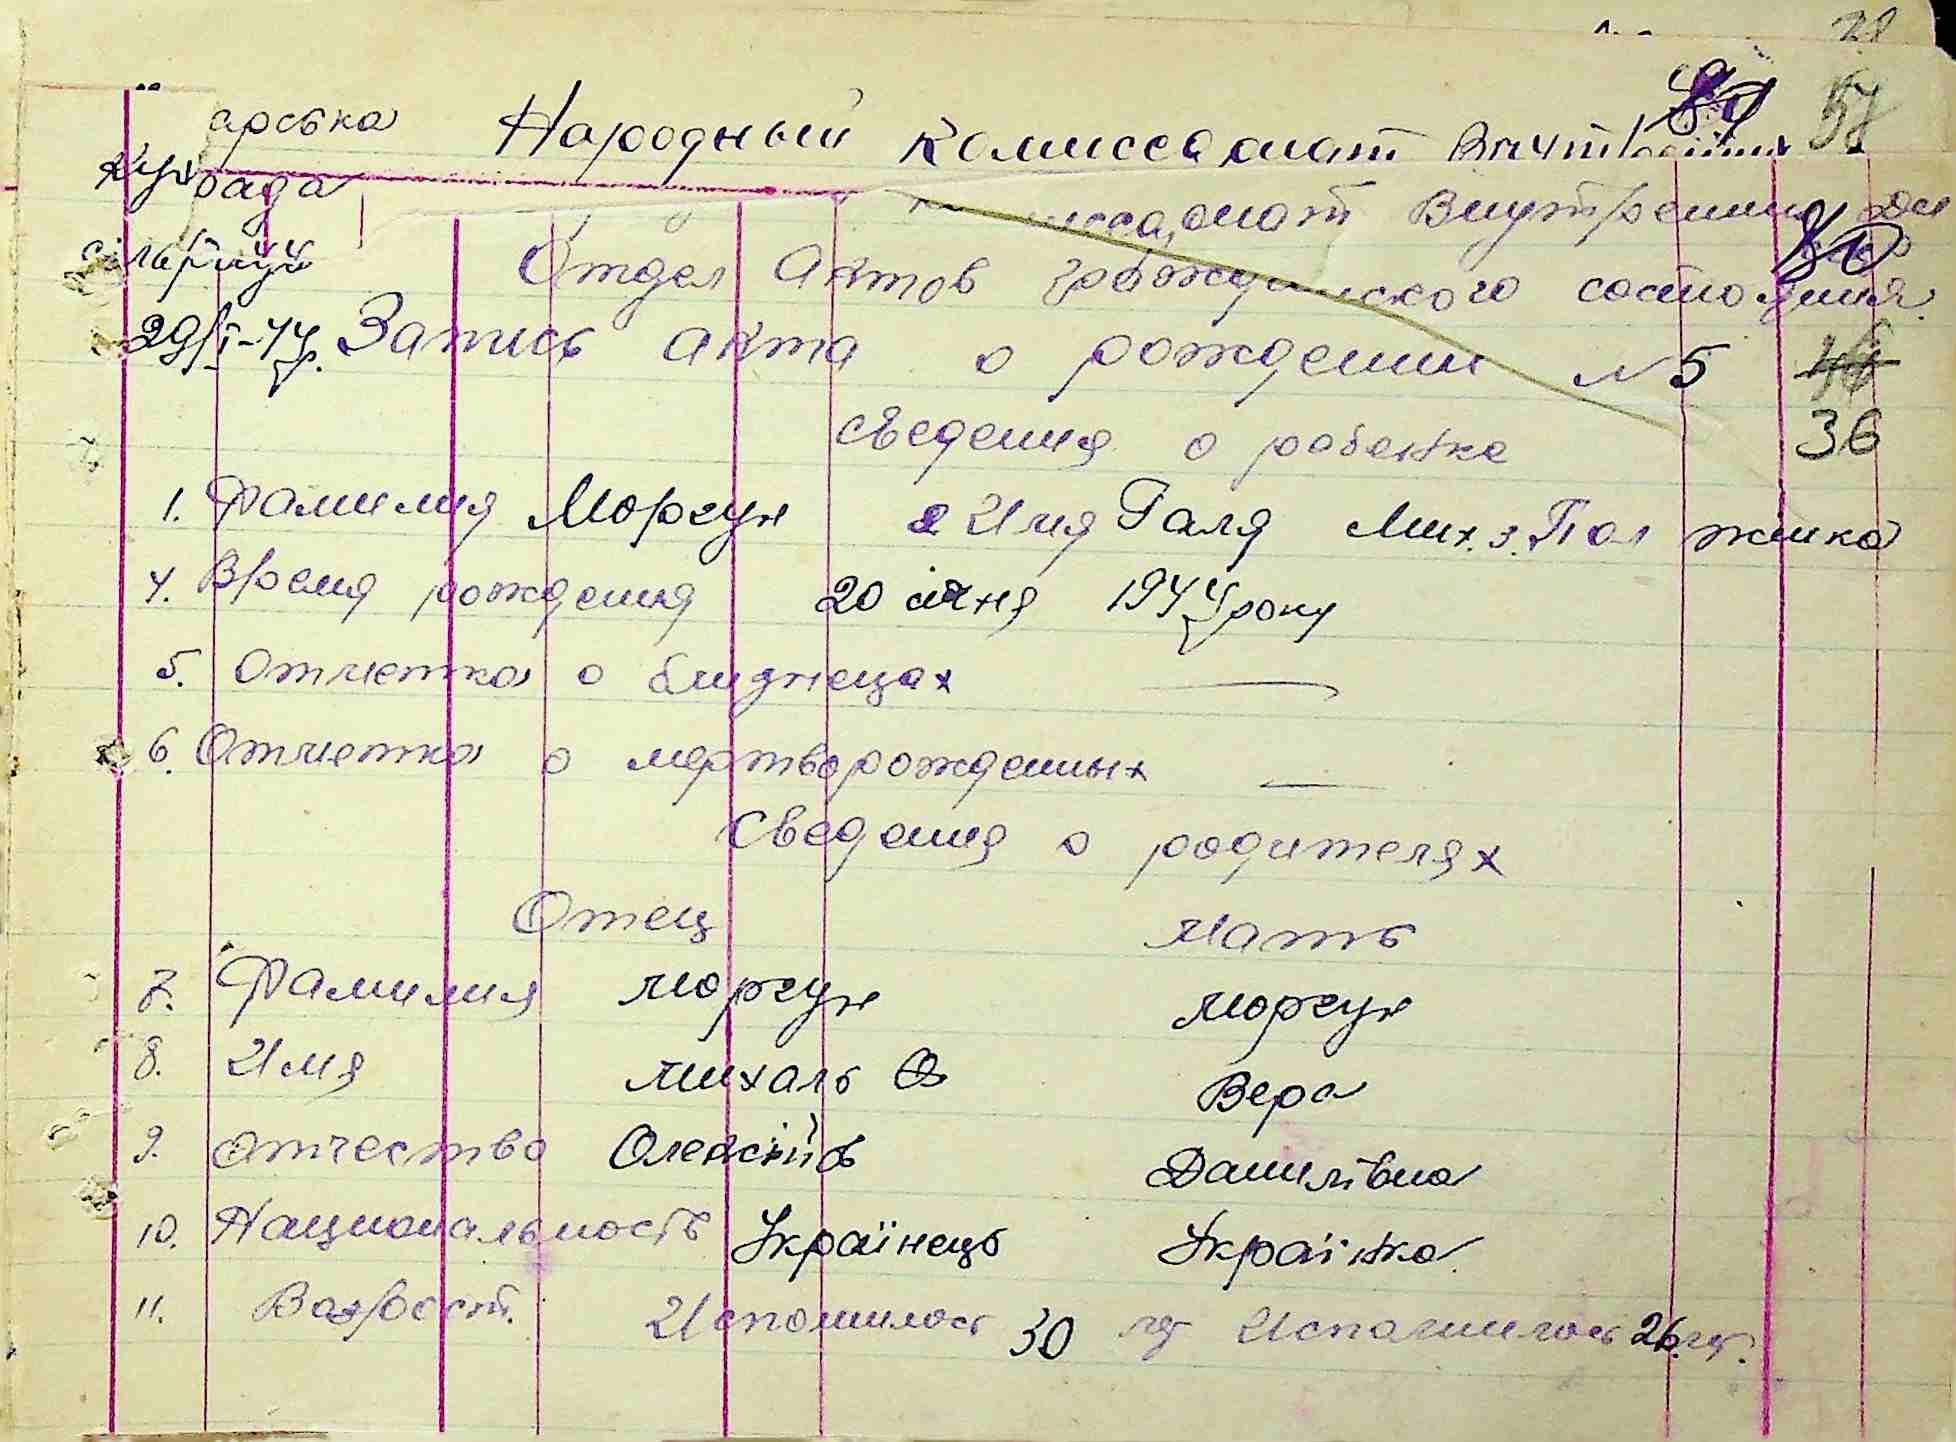 78
арська Народный Комиссариат 57
Кух рада
комиссариат Внутренних Дел
сільради Отдел Актов гражданского состояния
29/I-44р. Запись акта о рождении №5
сведения о ребенке 36
1. Фамилия Моргун 2 Имя Галя Мих. 3. Пол жинка
4. Время рождения 20 січня 1944 року
5. Отметка о близнецах —
6. Отметка о мертворожденных —
Сведения о родителях
Отец Мать
7. Фамилия Моргун Моргун
8. Имя Михаль Вера
9. Отчество Олексійов Данилівна
10. Национальность Українець Українка
11. Возраст. Исполнилось 30 лет Исполнилось 26 лет.